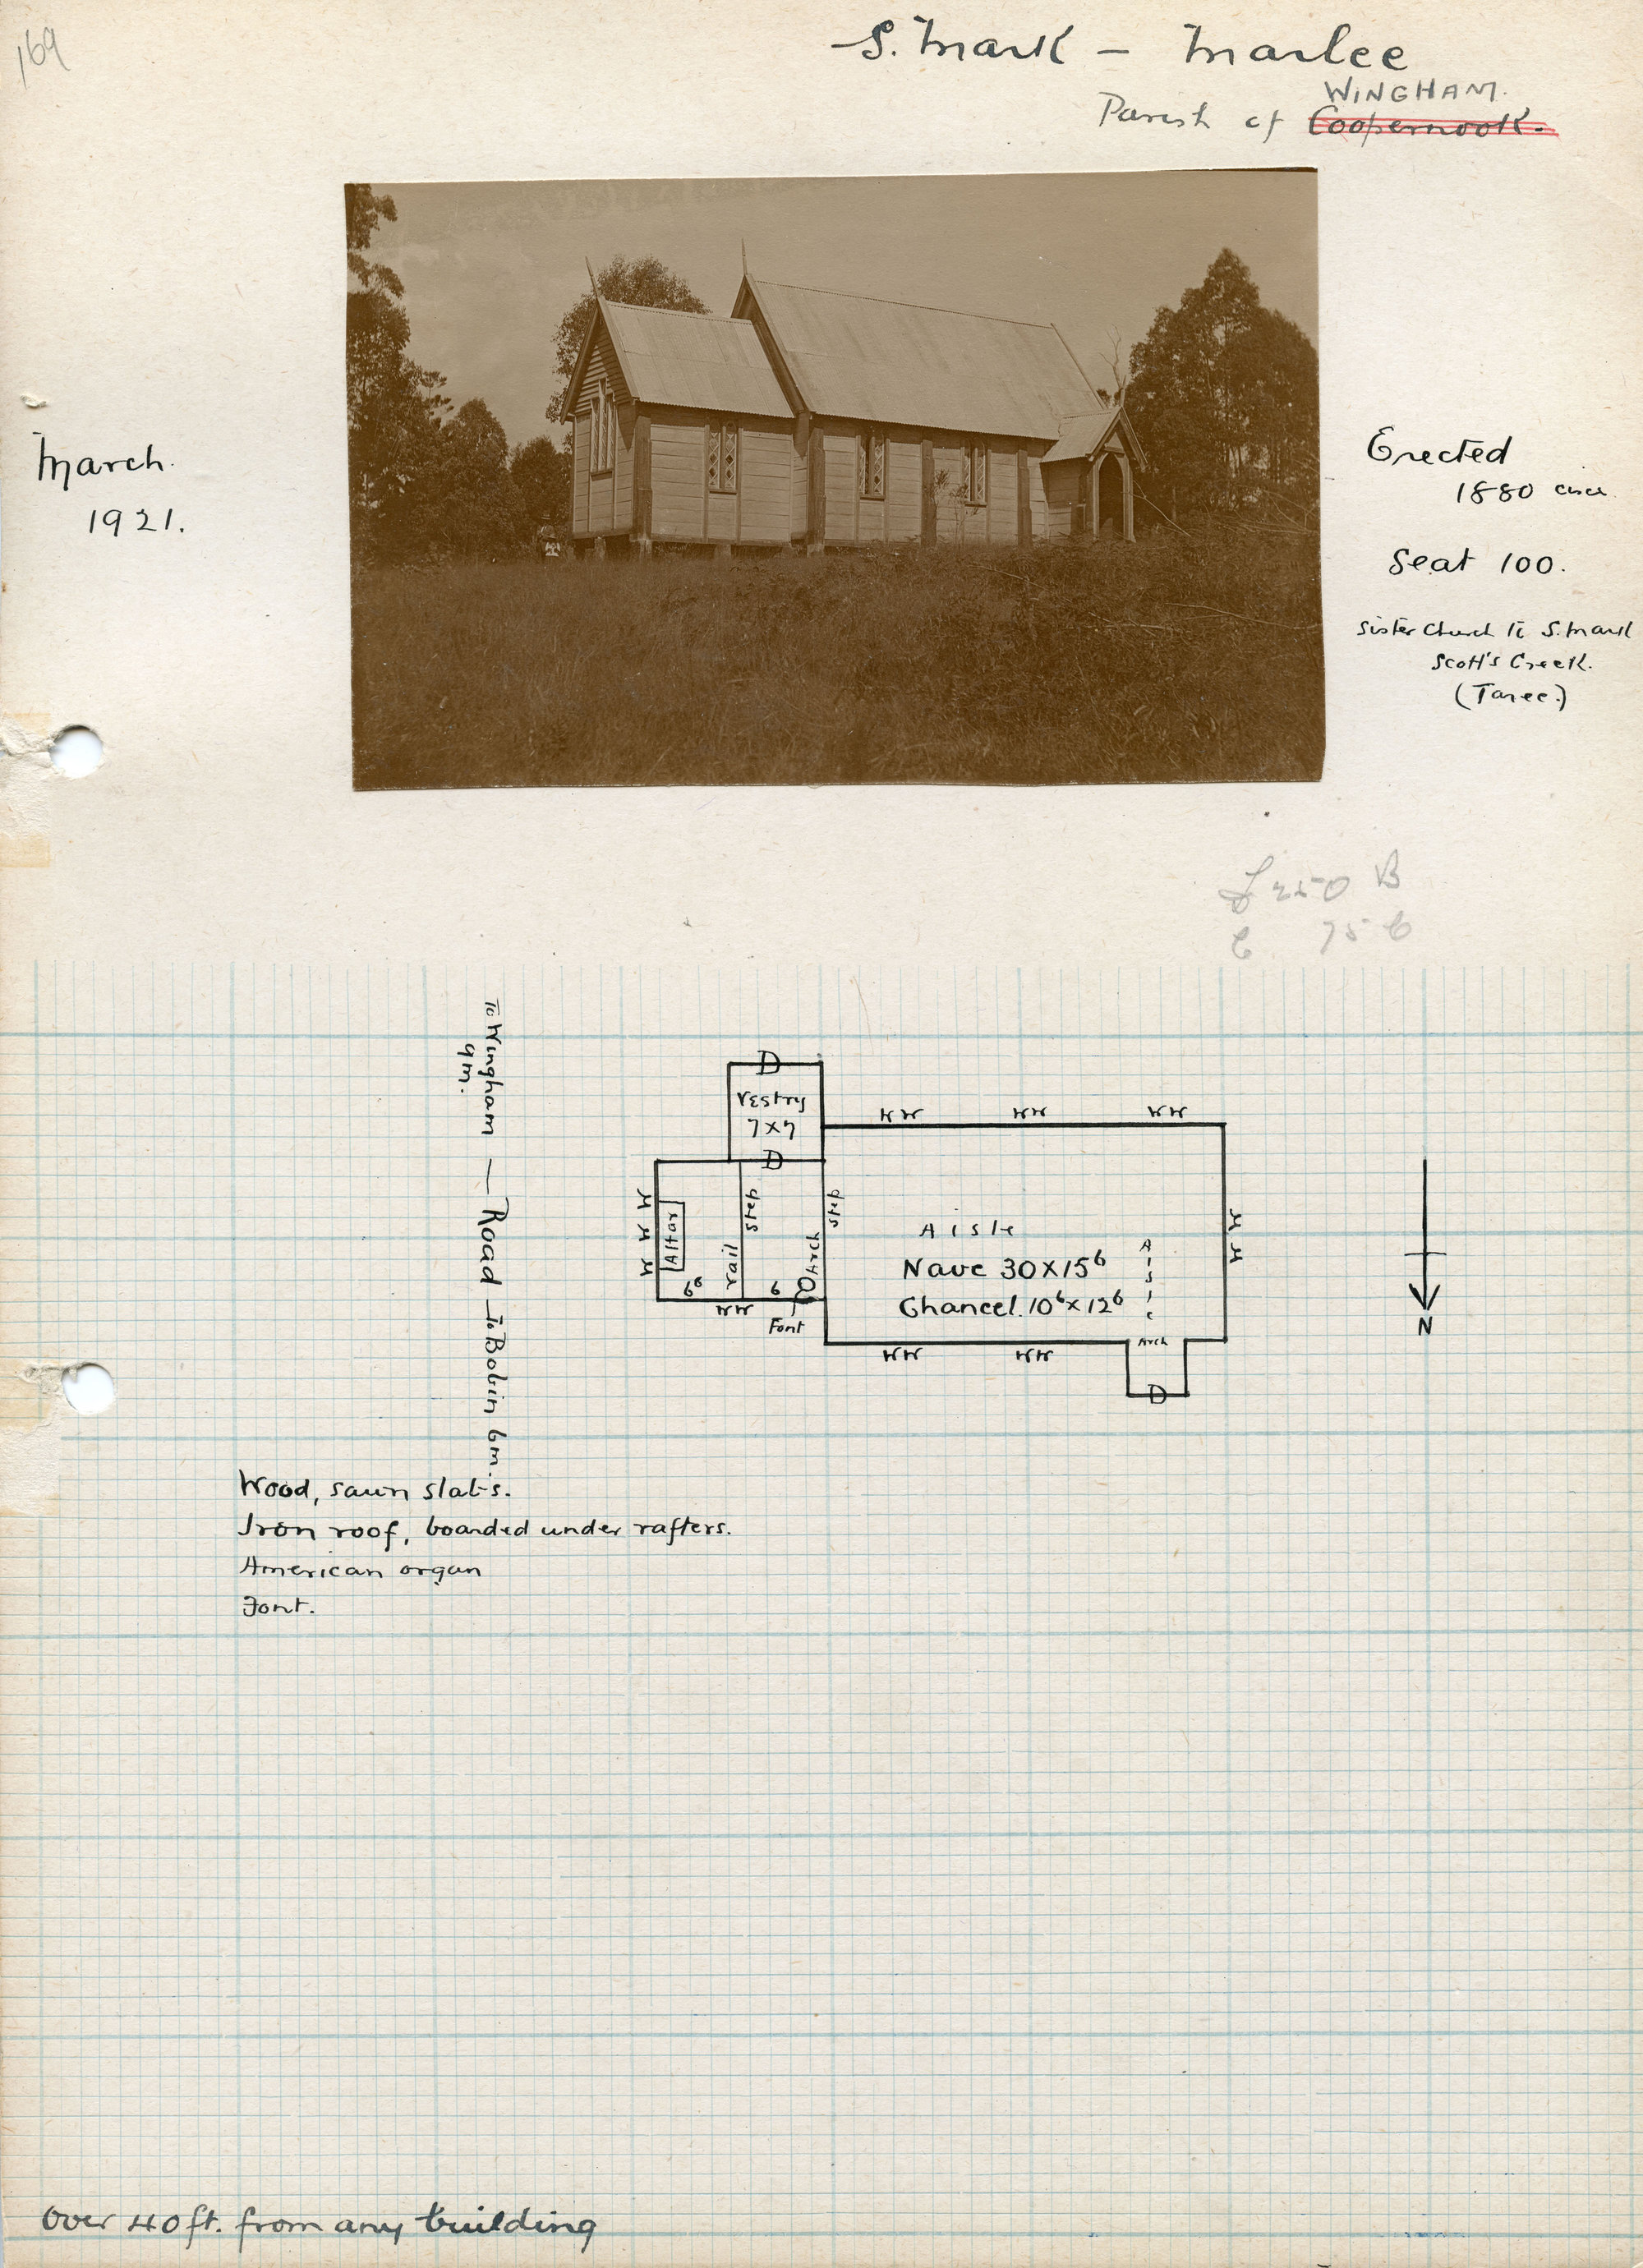 169
S. Mark – Marlee
WINGHAM.
Parish of Coopernook.
March.
1921.
Erected
1880 circa
Seat 100.
Sister Church to S. Mark
Scott's Creek.
(Taree.)
£250 B
75 C
To Wingham — Road To Bobin 6m.
9m.
D
Vestry
7x7
D
WW WW WW
W W W
Altar
step
rail
6⁶
6
WW
Font
Arch
step
Aisle
Nave 30x15⁶
Chancel. 10⁶x12⁶
Aisle
Arch
D
WW WW
W W
N
Wood, sawn slabs.
Iron roof, boarded under rafters.
American organ
Font.
Over 40ft. from any building